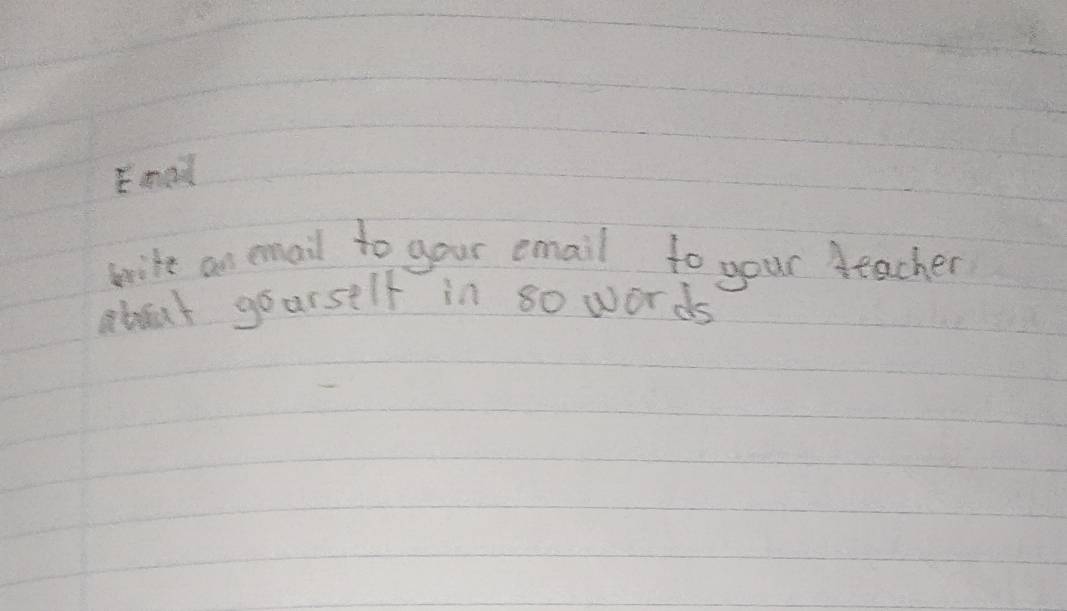 Email
write an email to your email to your teacher
about yourself in 80 words